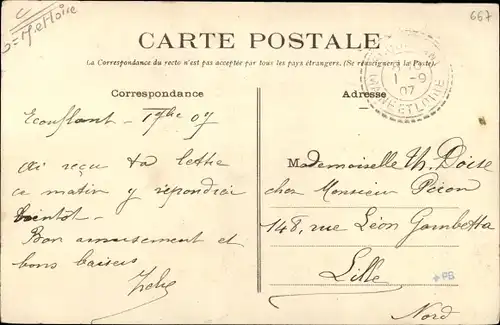 M et Loire
667
CARTE POSTALE
La Correspondance du recto n'est pas acceptée par tous les pays étrangers. (Se renseigner à la Poste).
1 - 9
07
MAINE ET LOIRE
Correspondance
Adresse
Ecouflant - 1 7bre 07
Ai reçu ta lettre
ce matin y répondrai
bientôt -
Bon amusement et
bons baisers
Mademoiselle Th.
chez Monsieur
148, rue Léon Gambetta
Lille
Nord
PB